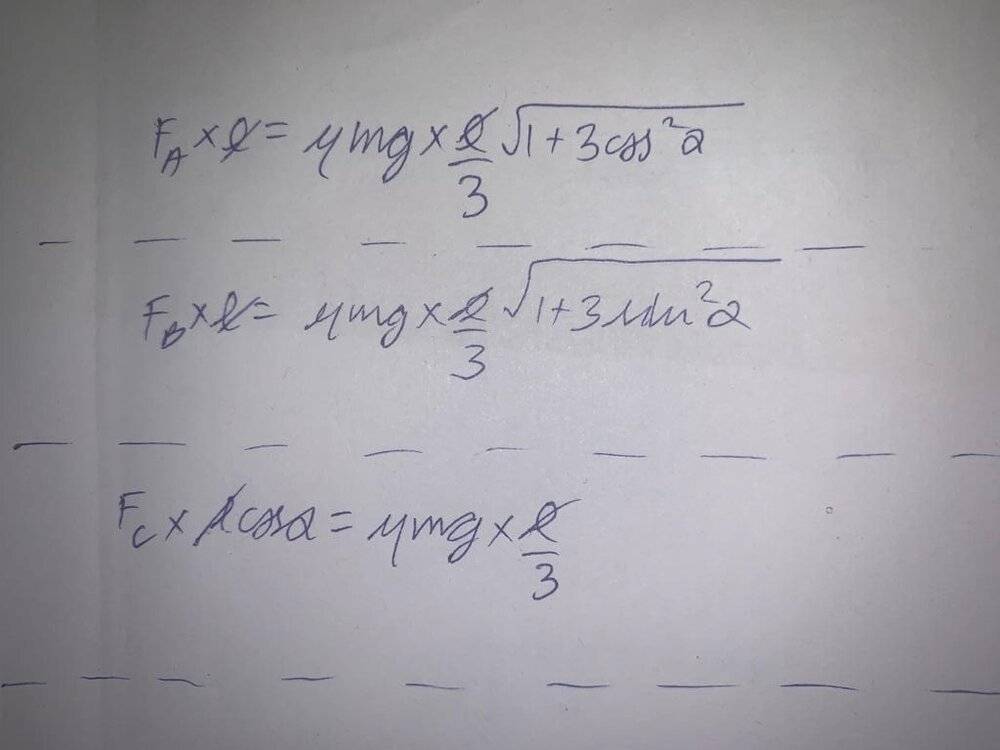 F_A × ℓ = μmg × ℓ/3 √(1+3cos²α)
F_B × ℓ = μmg × ℓ/3 √(1+3sin²α)
F_C × ℓcosα = μmg × ℓ/3